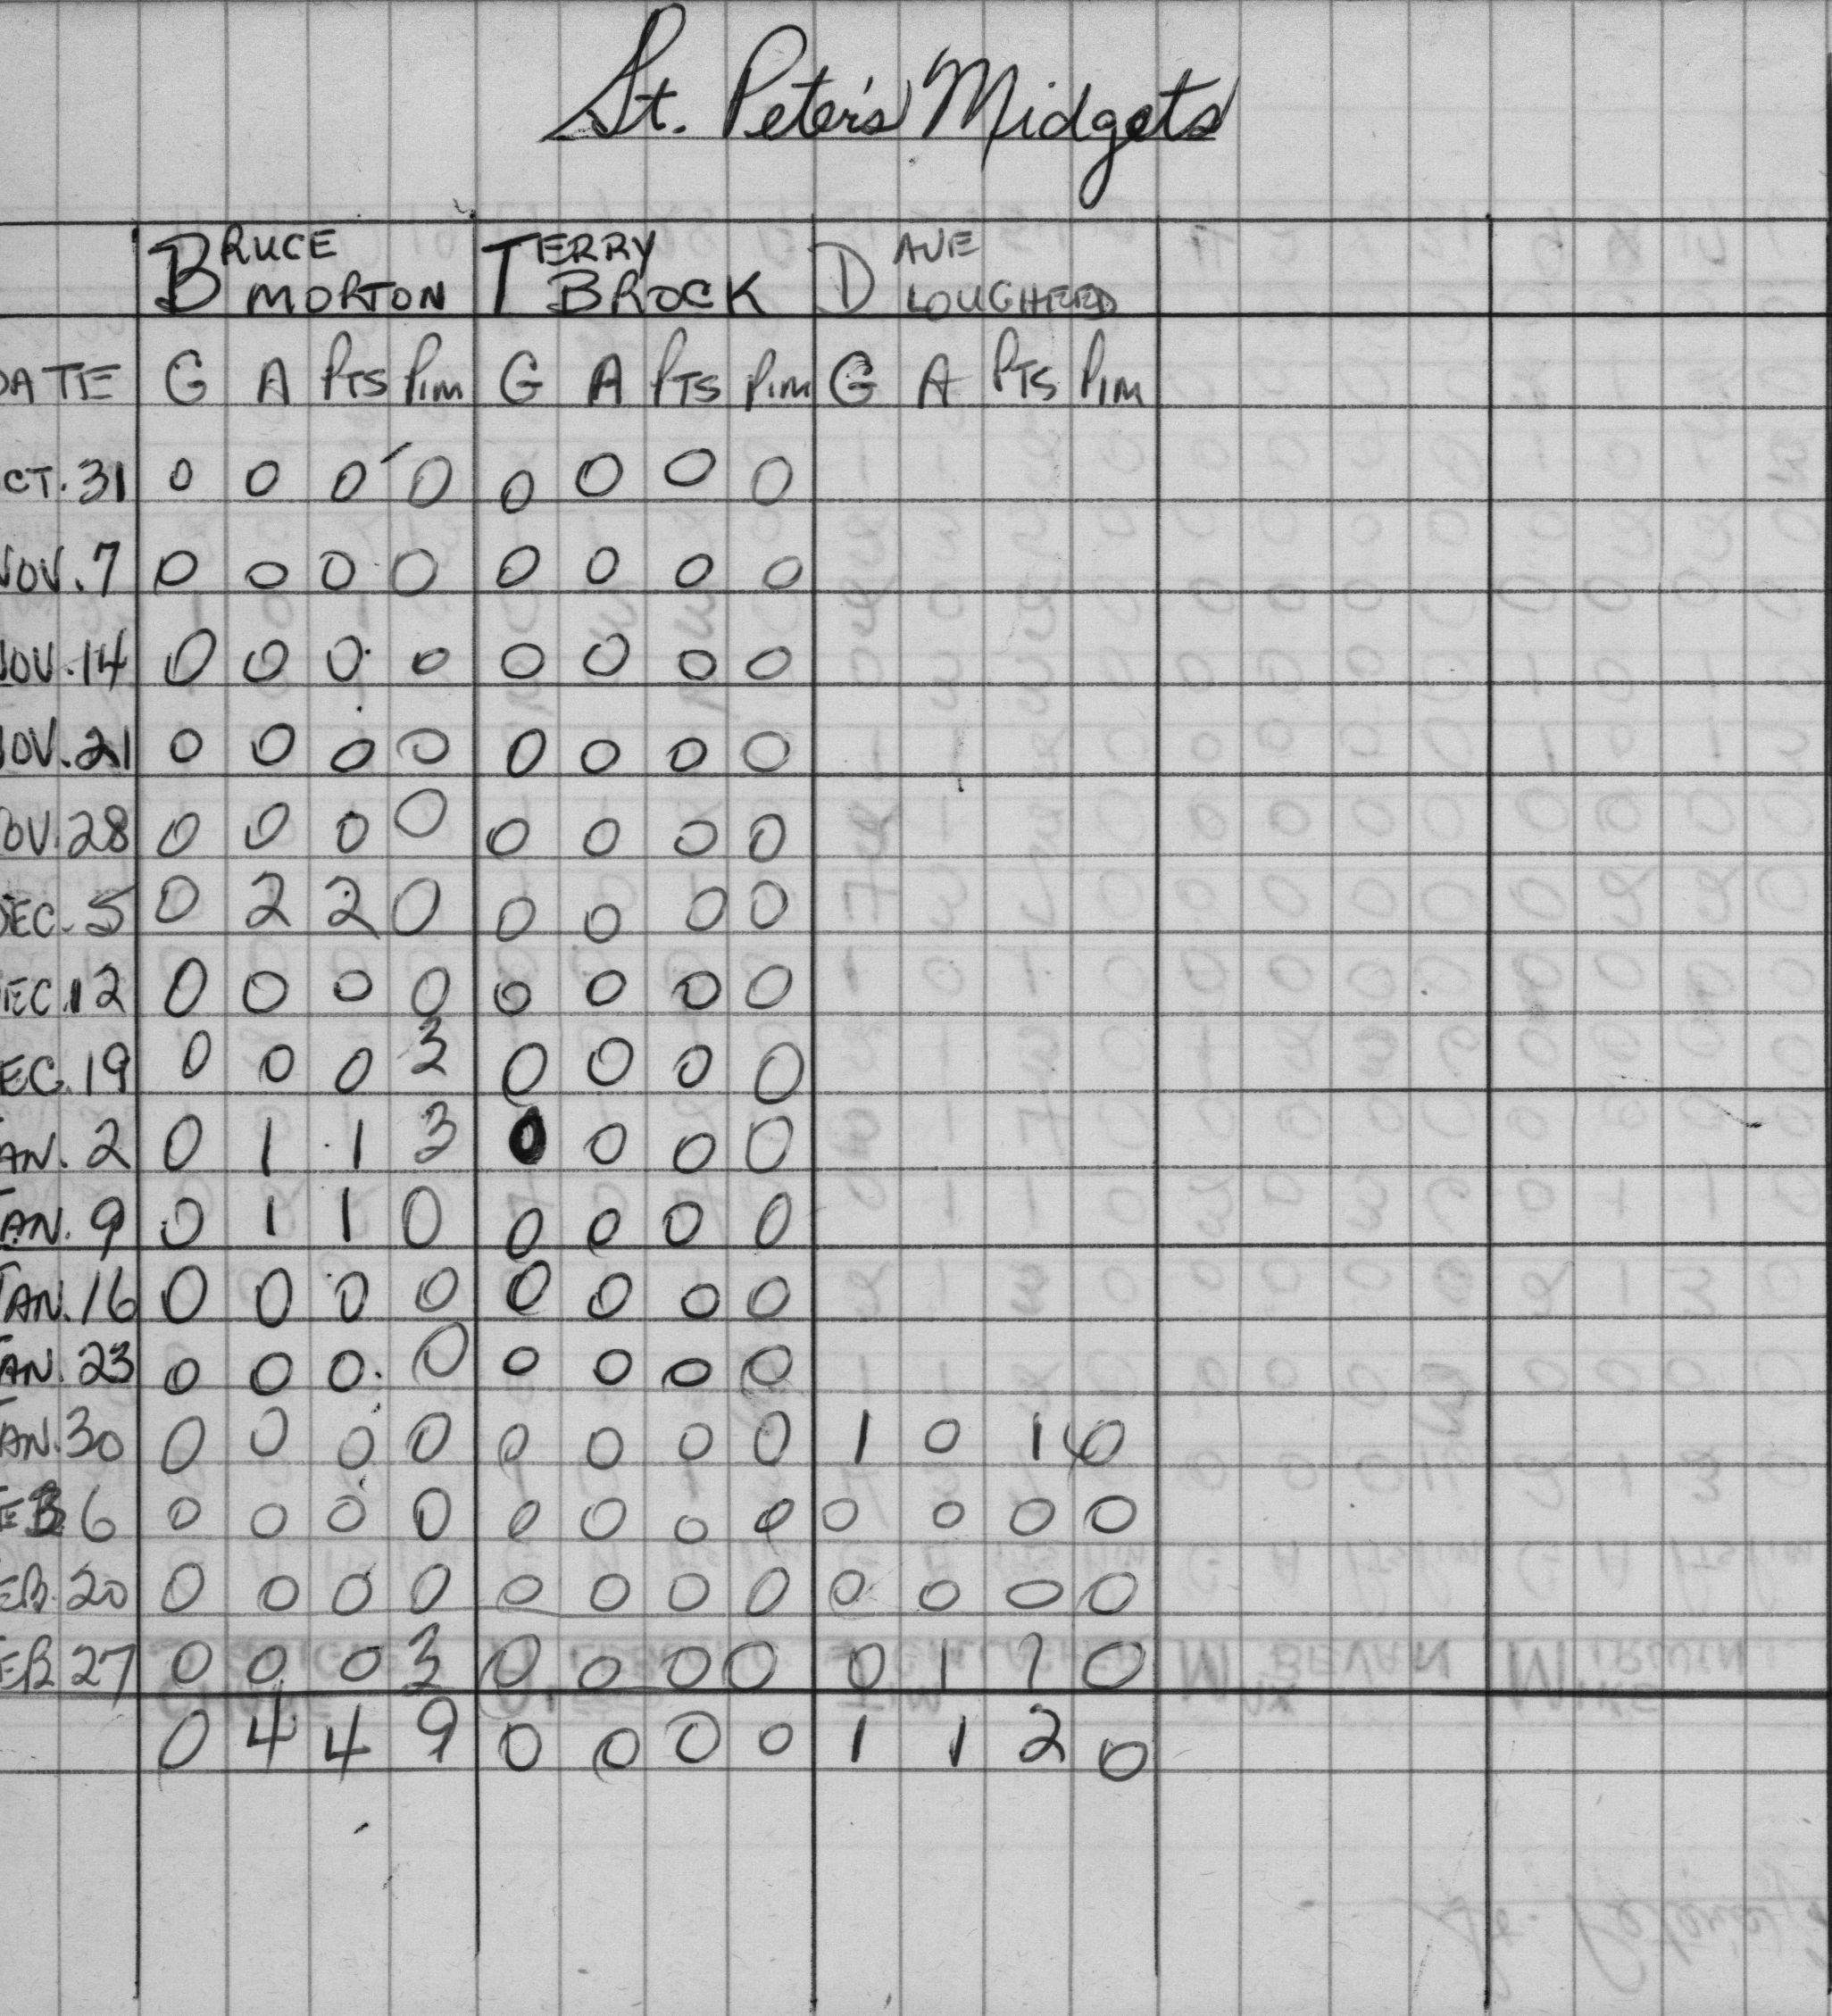 St. Peter's Midgets
BRUCE MORTON TERRY BROCK DAVE LOUGHEED
DATE G A PTS PIM G A PTS PIM G A PTS PIM
CT. 31 0 0 0 0 0 0 0 0
NOV. 7 0 0 0 0 0 0 0 0
NOV. 14 0 0 0 0 0 0 0 0
NOV. 21 0 0 0 0 0 0 0 0
OV. 28 0 0 0 0 0 0 0 0
DEC. 5 0 2 2 0 0 0 0 0
EC. 12 0 0 0 0 0 0 0 0
EC. 19 0 0 0 3 0 0 0 0
AN. 2 0 1 1 3 0 0 0 0
AN. 9 0 1 1 0 0 0 0 0
AN. 16 0 0 0 0 0 0 0 0
AN. 23 0 0 0 0 0 0 0 0
AN. 30 0 0 0 0 0 0 0 0 1 0 1 0
EB 6 0 0 0 0 0 0 0 0 0 0 0 0
EB. 20 0 0 0 0 0 0 0 0 0 0 0 0
EB 27 0 0 0 3 0 0 0 0 0 1 1 0
0 4 4 9 0 0 0 0 1 1 2 0